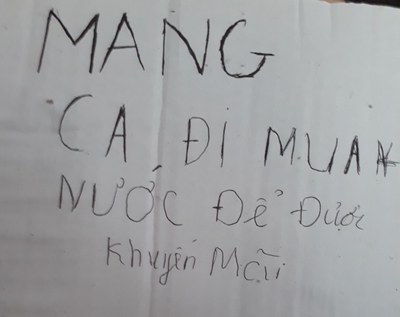 MANG
CA ĐI MUAN
NƯỚC ĐỂ ĐƯỢC
Khuyến Mãi